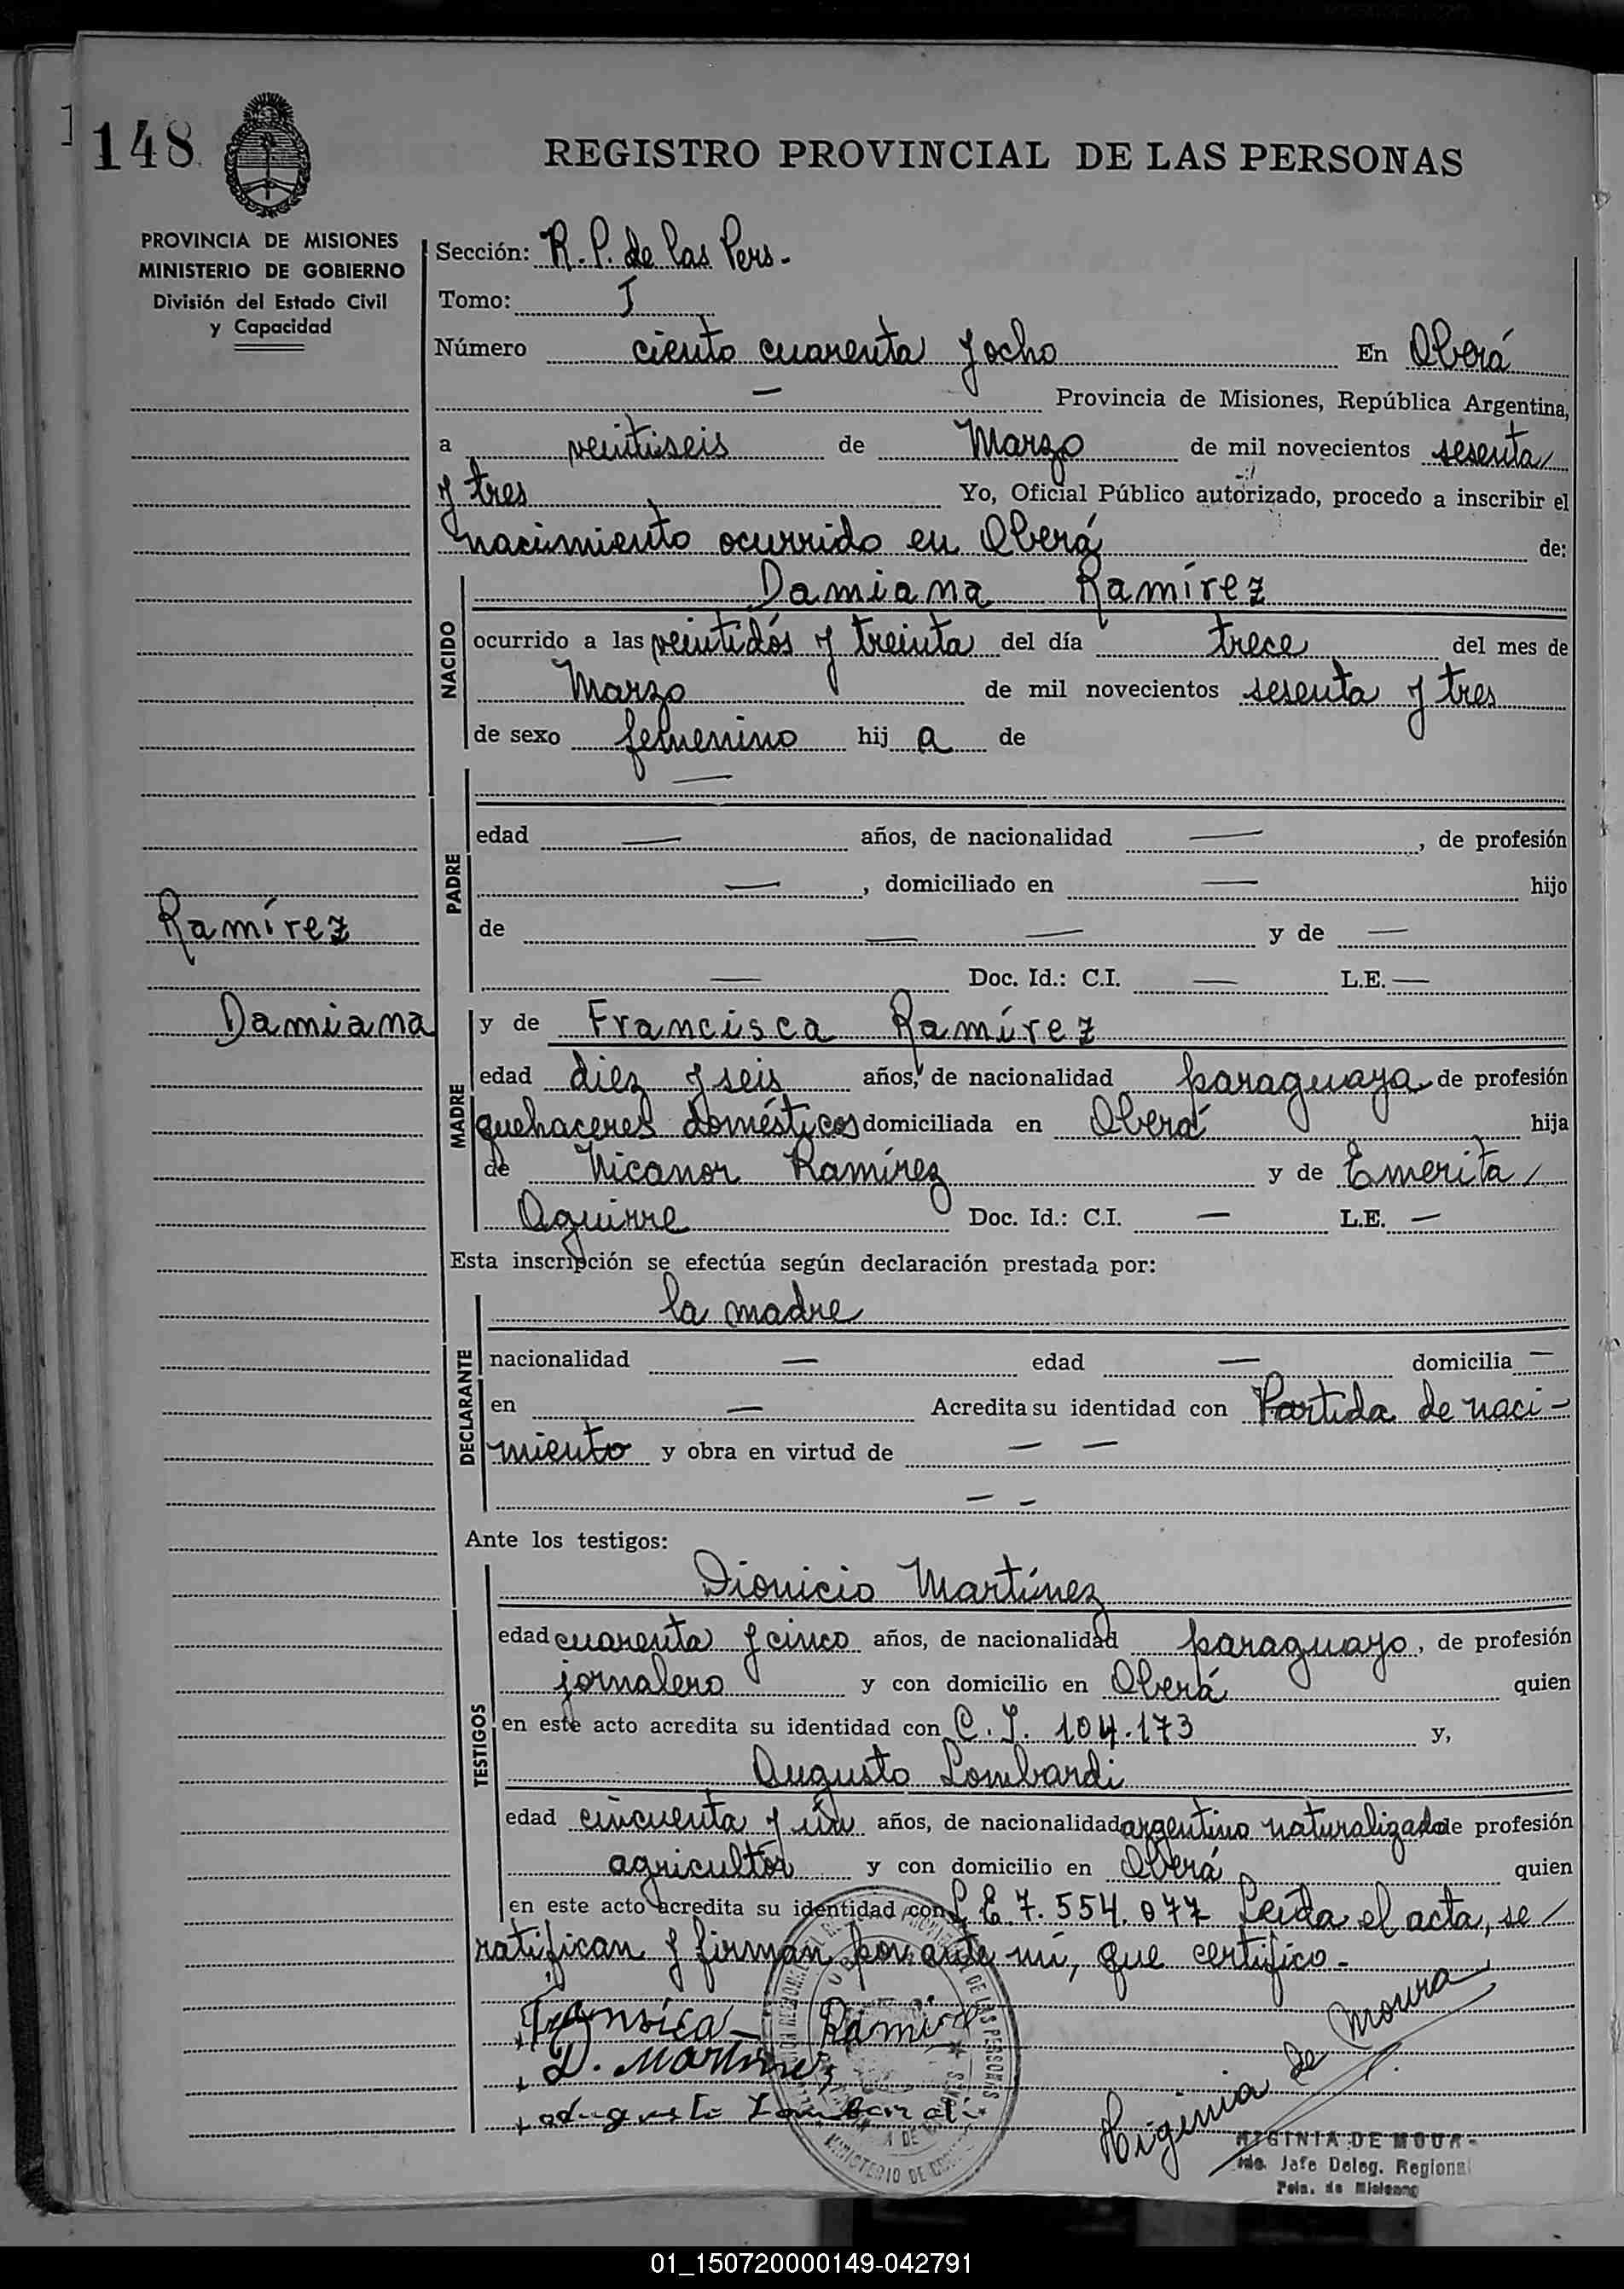 148
REGISTRO PROVINCIAL DE LAS PERSONAS
PROVINCIA DE MISIONES
MINISTERIO DE GOBIERNO
División del Estado Civil
y Capacidad
Sección: R. P. de las Pers.
Tomo: I
Número ciento cuarenta y ocho En Oberá
— Provincia de Misiones, República Argentina,
a veintiseis de Marzo de mil novecientos sesenta
y tres Yo, Oficial Público autorizado, procedo a inscribir el
nacimiento ocurrido en Oberá de:
NACIDO
Damiana Ramírez
ocurrido a las veintidós y treinta del día trece del mes de
Marzo de mil novecientos sesenta y tres
de sexo femenino hij a de
PADRE
—
edad — años, de nacionalidad —, de profesión
—, domiciliado en — hijo
de — — y de —
— Doc. Id.: C.I. — L.E. —
Ramírez
Damiana
MADRE
y de Francisca Ramírez
edad diez y seis años, de nacionalidad paraguaya de profesión
quehaceres domésticos domiciliada en Oberá hija
de Nicanor Ramírez y de Emerita
Aguirre Doc. Id.: C.I. — L.E. —
Esta inscripción se efectúa según declaración prestada por:
DECLARANTE
la madre
nacionalidad — edad — domicilia —
en — Acredita su identidad con Partida de naci-
miento y obra en virtud de — —
— —
Ante los testigos:
TESTIGOS
Dionicio Martínez
edad cuarenta y cinco años, de nacionalidad paraguayo, de profesión
jornalero y con domicilio en Oberá quien
en este acto acredita su identidad con C. I. 104.173 y,
Augusto Lombardi
edad cincuenta y un años, de nacionalidad argentino naturalizado de profesión
agricultor y con domicilio en Oberá quien
en este acto acredita su identidad con L. E. 7.554.077 Leída el acta, se
ratifican y firman por ante mí, que certifico.
Ramire
D. Martinez
Augusto Lombardi
Higinia de Moura
HIGINIA DE MOURA
Jefe Deleg. Regional
Pcia. de Misiones
01_150720000149-042791